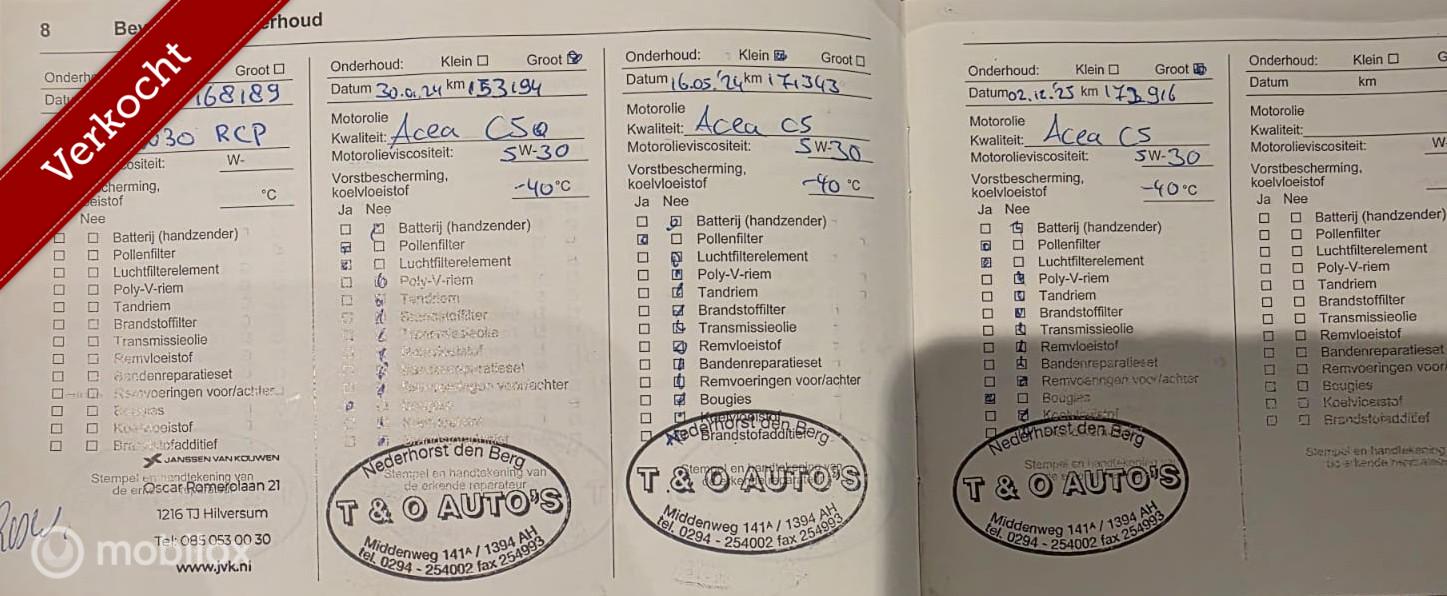 Verkocht
8
erhoud
Groot
168189
030 RCP
ositeit: W-
cherming,
eistof °C
Nee
Batterij (handzender)
Pollenfilter
Luchtfilterelement
Poly-V-riem
Tandriem
Brandstoffilter
Transmissieolie
Remvloeistof
Bandenreparatieset
Remvoeringen voor/achter
Bougies
Koelvloeistof
Brandstofadditief
JANSSEN VAN KOUWEN
Stempel en handtekening van
Oscar Romerolaan 21
1216 TJ Hilversum
Tel: 085 053 00 30
www.jvk.nl
mobilox
Onderhoud: Klein Groot
Datum 30.01.24 km 153194
Motorolie
Kwaliteit: Acea C5
Motorolieviscositeit: 5W-30
Vorstbescherming,
koelvloeistof -40 °C
Ja Nee
Batterij (handzender)
Pollenfilter
Luchtfilterelement
Poly-V-riem
Tandriem
Brandstoffilter
Transmissieolie
Remvloeistof
Bandenreparatieset
Remvoeringen voor/achter
Bougies
Koelvloeistof
Nederhorst den Berg
Stempel en handtekening van
de erkende reparateur
T & O AUTO'S
Middenweg 141A / 1394 AH
tel. 0294 - 254002 fax 254993
Onderhoud: Klein Groot
Datum 16.05.'24 km 171343
Motorolie
Kwaliteit: Acea C5
Motorolieviscositeit: 5W-30
Vorstbescherming,
koelvloeistof -40 °C
Ja Nee
Batterij (handzender)
Pollenfilter
Luchtfilterelement
Poly-V-riem
Tandriem
Brandstoffilter
Transmissieolie
Remvloeistof
Bandenreparatieset
Remvoeringen voor/achter
Bougies
Koelvloeistof
Brandstofadditief
Nederhorst den Berg
Stempel en handtekening van
de erkende reparateur
T & O AUTO'S
Middenweg 141A / 1394 AH
tel. 0294 - 254002 fax 254993
Onderhoud: Klein Groot
Datum 02.12.'25 km 173916
Motorolie
Kwaliteit: Acea C5
Motorolieviscositeit: 5W-30
Vorstbescherming,
koelvloeistof -40 °C
Ja Nee
Batterij (handzender)
Pollenfilter
Luchtfilterelement
Poly-V-riem
Tandriem
Brandstoffilter
Transmissieolie
Remvloeistof
Bandenreparatieset
Remvoeringen voor/achter
Bougies
Koelvloeistof
Nederhorst den Berg
Stempel en handtekening van
T & O AUTO'S
Middenweg 141A / 1394 AH
tel. 0294 - 254002 fax 254993
Onderhoud: Klein G
Datum km
Motorolie
Kwaliteit:
Motorolieviscositeit: W-
Vorstbescherming,
koelvloeistof
Ja Nee
Batterij (handzender)
Pollenfilter
Luchtfilterelement
Poly-V-riem
Tandriem
Brandstoffilter
Transmissieolie
Remvloeistof
Bandenreparatieset
Remvoeringen voor/
Bougies
Koelvloeistof
Brandstofadditief
Stempel en handtekening